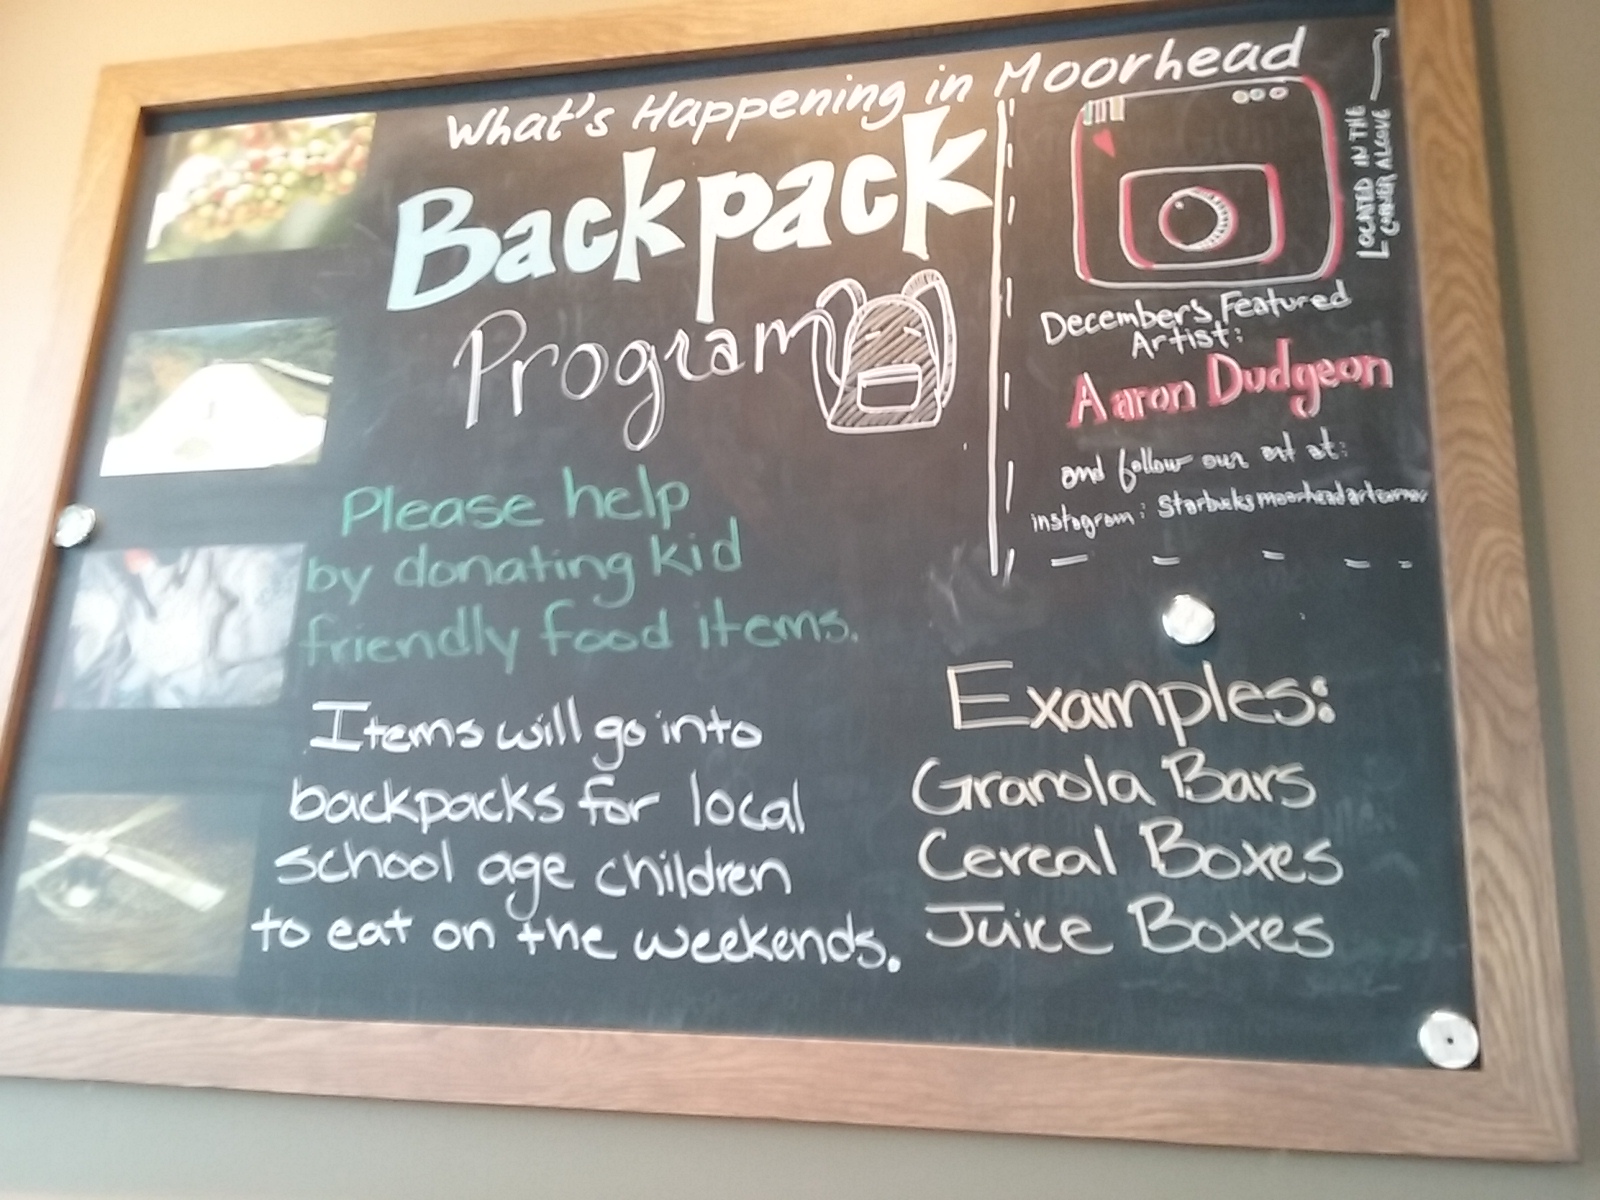 What's Happening in Moorhead
Backpack
Program
Please help
by donating kid
friendly food items.
Items will go into
backpacks for local
school age children
to eat on the weekends.
LOCATED IN THE
CORNER ALCOVE
December's Featured
Artist:
Aaron Dudgeon
and follow our art at:
instagram: Starbucksmoorheadartcorner
Examples:
Granola Bars
Cereal Boxes
Juice Boxes